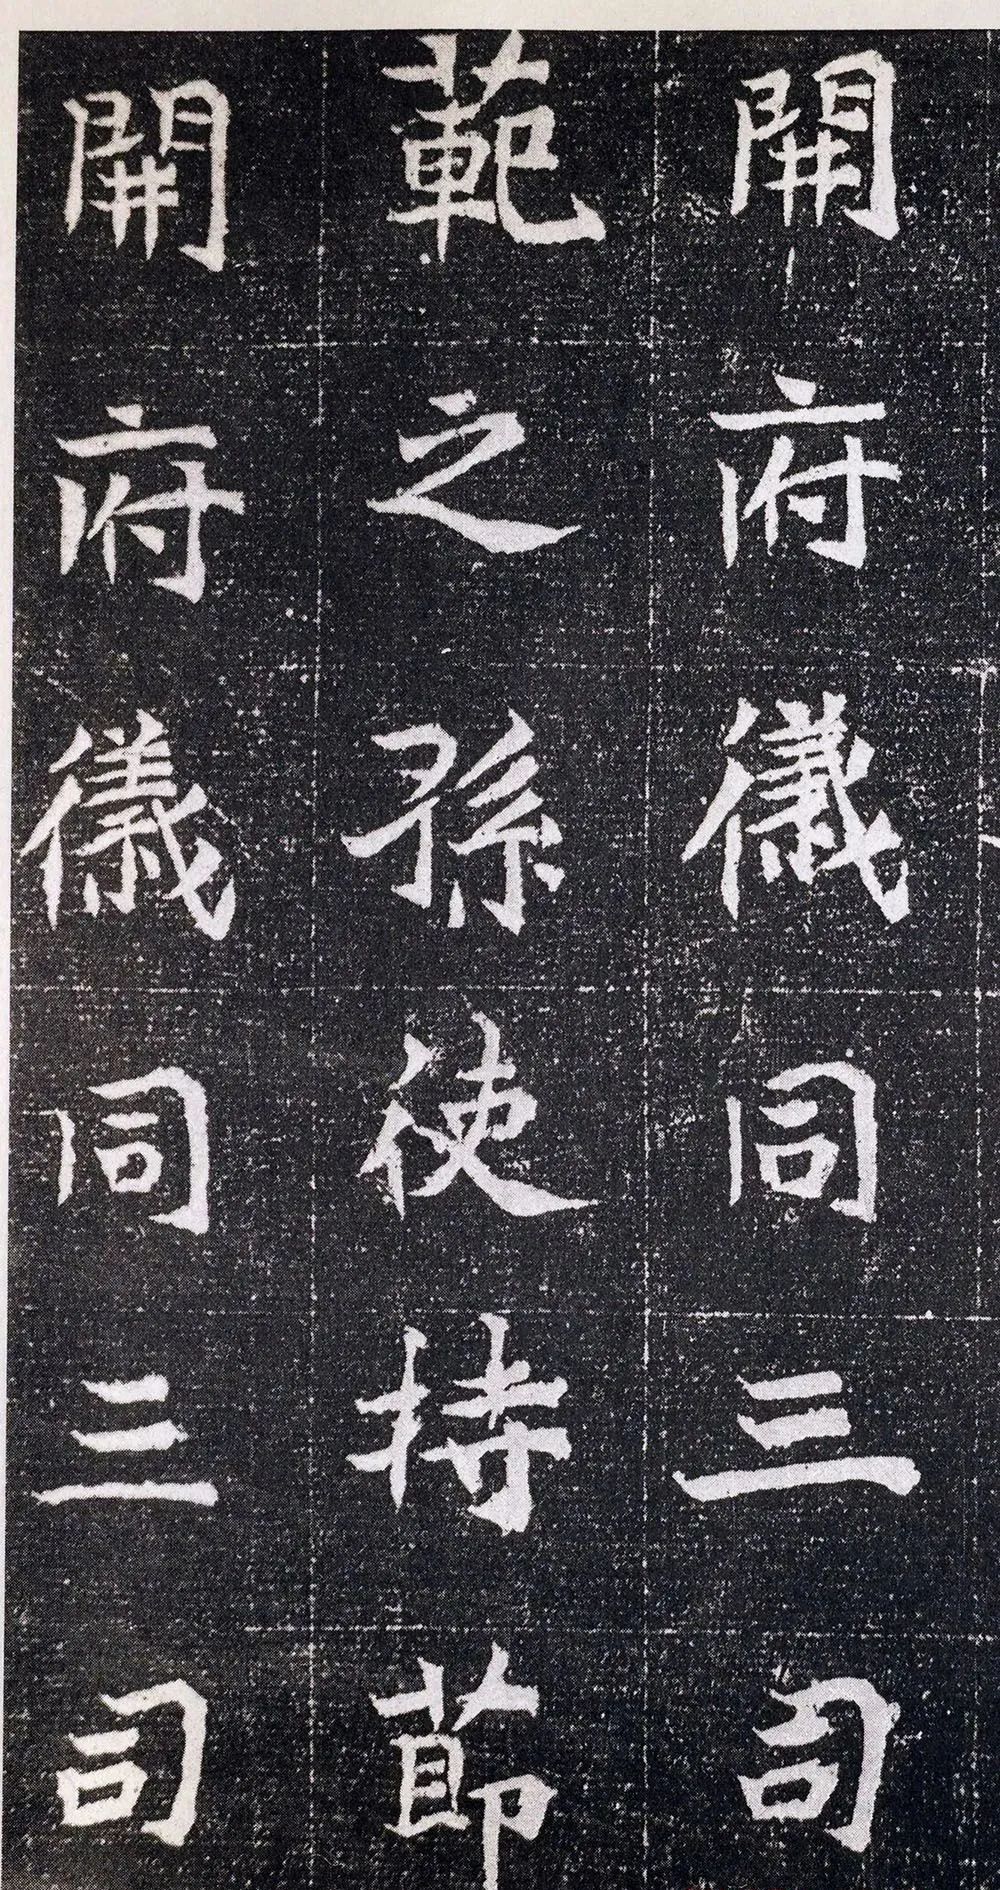 開府儀同三司
範之孫使持節
開府儀同三司